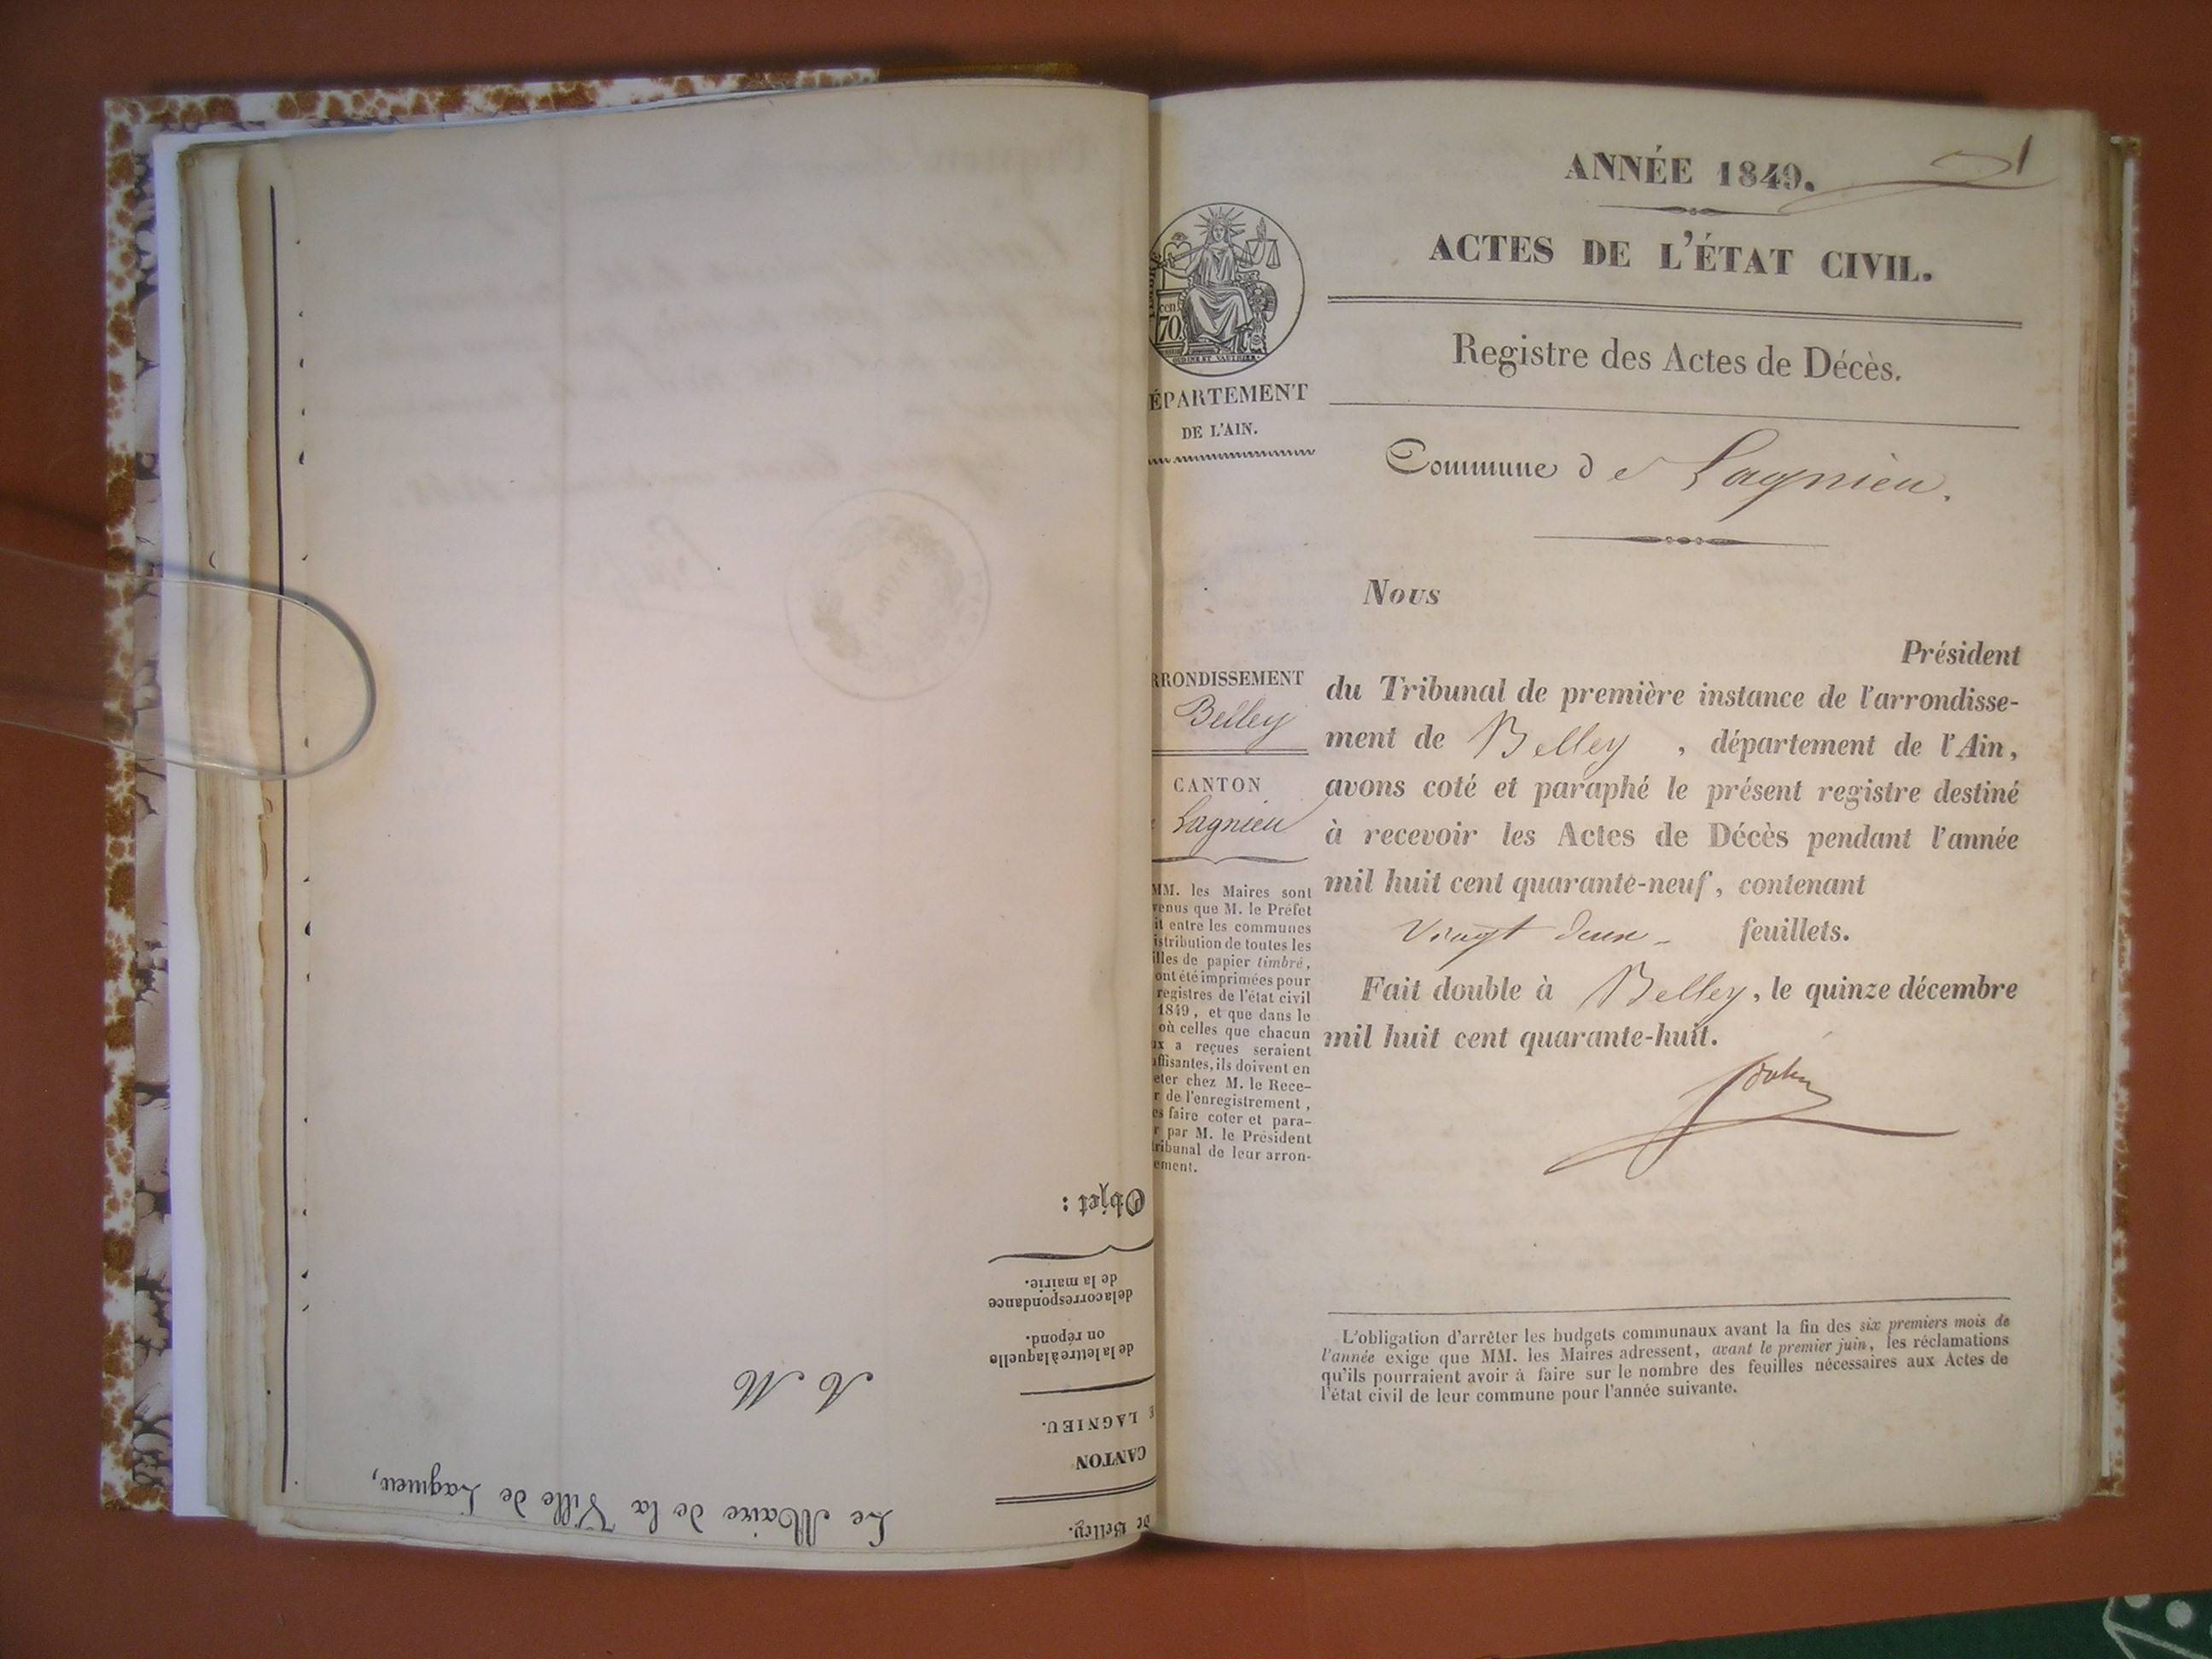 Le Maire de la Ville de Lagnieu,
A M
de Belley.
CANTON
LAGNIEU.
de la lettre à laquelle
on répond.
de la correspondance
de la mairie.
Objet :
ANNÉE 1849.
1
ACTES DE L'ÉTAT CIVIL.
Registre des Actes de Décès.
Commune de Lagnieu.
cent
70
ÉPARTEMENT
DE L'AIN.
RRONDISSEMENT
Belley
CANTON
Lagnieu
MM. les Maires sont
venus que M. le Préfet
it entre les communes
istribution de toutes les
illes de papier timbré,
ont été imprimées pour
registres de l'état civil
1849, et que dans le
où celles que chacun
ux a reçues seraient
ffisantes, ils doivent en
eter chez M. le Rece-
r de l'enregistrement,
es faire coter et para-
r par M. le Président
tribunal de leur arron-
ement.
Nous
Président
du Tribunal de première instance de l'arrondisse-
ment de Belley, département de l'Ain,
avons coté et paraphé le présent registre destiné
à recevoir les Actes de Décès pendant l'année
mil huit cent quarante-neuf, contenant
Vingt deux feuillets.
Fait double à Belley, le quinze décembre
mil huit cent quarante-huit.
L'obligation d'arrêter les budgets communaux avant la fin des six premiers mois de
l'année exige que MM. les Maires adressent, avant le premier juin, les réclamations
qu'ils pourraient avoir à faire sur le nombre des feuilles nécessaires aux Actes de
l'état civil de leur commune pour l'année suivante.